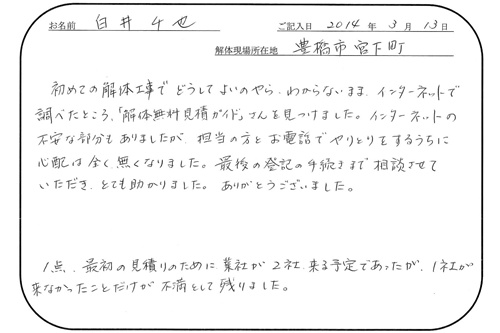 お名前 白井 千也 ご記入日 2014 年 3 月 13 日
解体現場所在地 豊橋市宮下町
初めての解体工事でどうしてよいのやら、わからないまま、インターネットで
調べたところ、「解体無料見積ガイド」さんを見つけました。インターネットの
不安な部分もありましたが、担当の方とお電話でやりとりをするうちに
心配は全く無くなりました。最後の登記の手続きまで相談させて
いただき、とても助かりました。ありがとうございました。
1点、最初の見積りのために業社が2社来る予定であったが、1社が
来なかったことだけが不満として残りました。